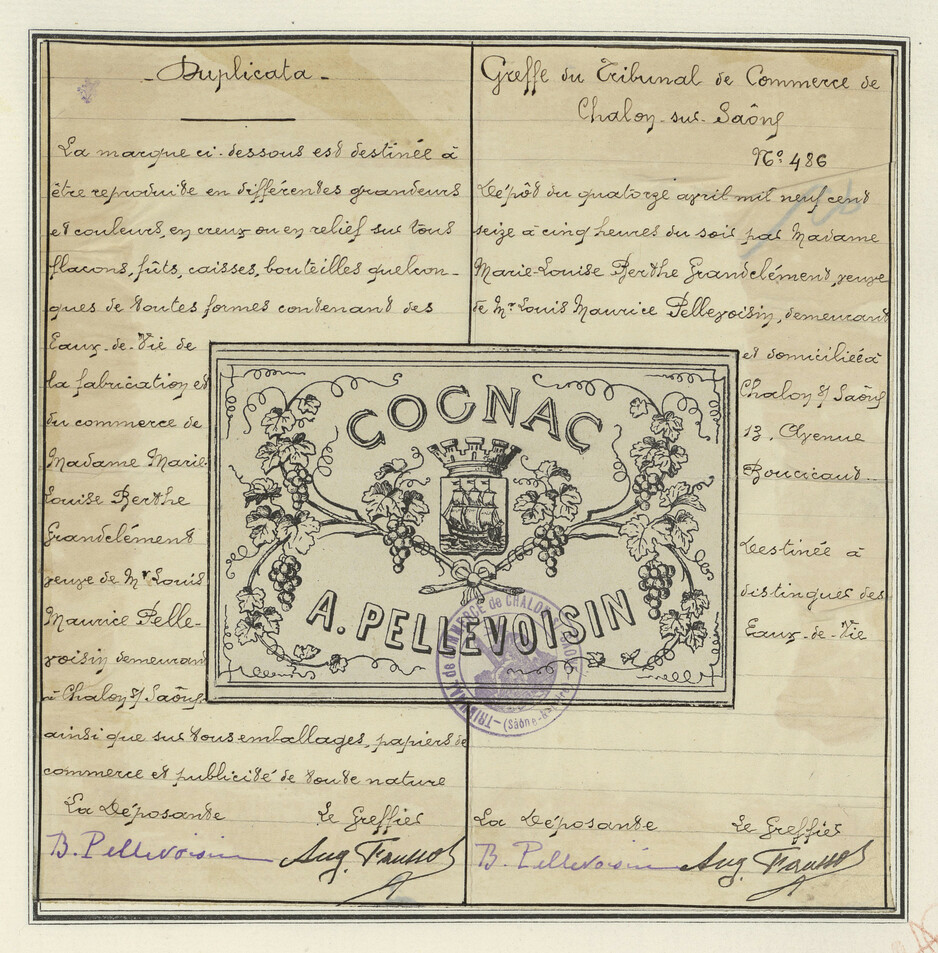 - Duplicata -
La marque ci-dessous est destinée à
être reproduite en différentes grandeurs
et couleurs, en creux ou en relief sur tous
flacons, fûts, caisses, bouteilles quelcon-
ques de toutes formes contenant des
Eaux-de-Vie de
la fabrication et
du commerce de
Madame Marie-
Louise Berthe
Grandclément
veuve de Mr Louis
Maurice Pelle-
voisin demeurant
à Chalon s/ Saône,
ainsi que sur tous emballages, papiers de
commerce et publicité de toute nature
La Déposante Le Greffier
B. Pellevoisin Aug.
Greffe du Tribunal de Commerce de
Chalon-sur-Saône
No: 486
Dépôt du quatorze avril mil neuf cent
seize à cinq heures du soir par Madame
Marie-Louise Berthe Grandclément, veuve
de Mr Louis Maurice Pellevoisin, demeurant
et domiciliée à
Chalon s/ Saône
13, Avenue
Boucicaut
Destinée à
distinguer des
Eaux-de-Vie
La Déposante Le Greffier
B. Pellevoisin Aug.
COGNAC
A. PELLEVOISIN
TRIBUNAL de COMMERCE de CHALON-SUR-SAÔNE
(Saône-et-Loire)